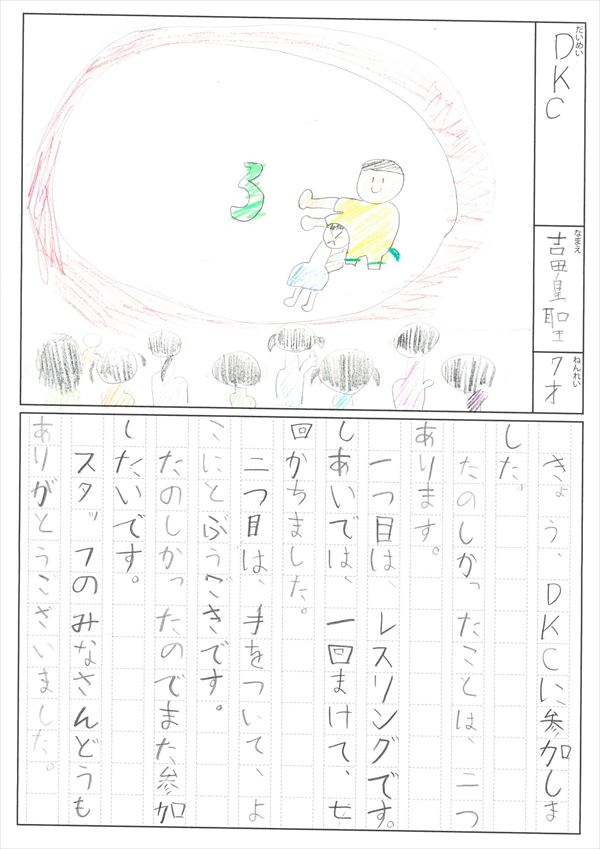 だいめい
DKC
なまえ
吉田皇聖
ねんれい
7才
3
きょう、DKCに参加しま
した。
たのしかったことは、二つ
あります。
一つ目は、レスリングです。
しあいでは、一回まけて、七
回かちました。
二つ目は、手をついて、よ
こにとぶうごきです。
たのしかったのでまた参加
したいです。
スタッフのみなさんどうも
ありがとうございました。